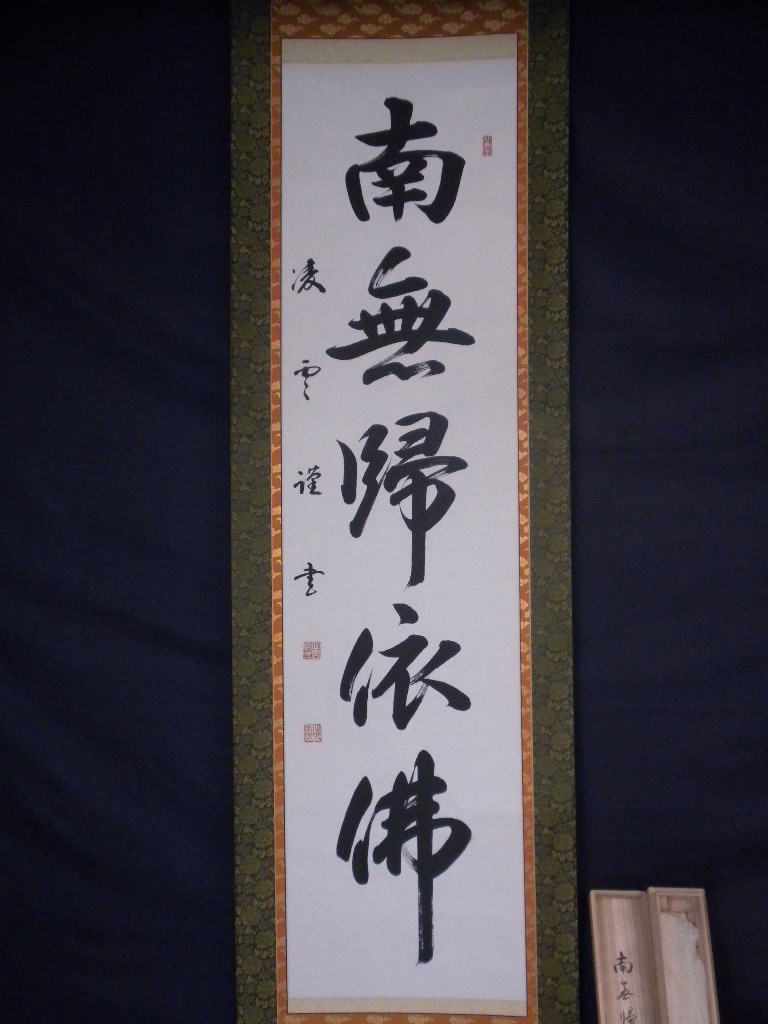 南無歸依佛
凌雲謹書
南無歸